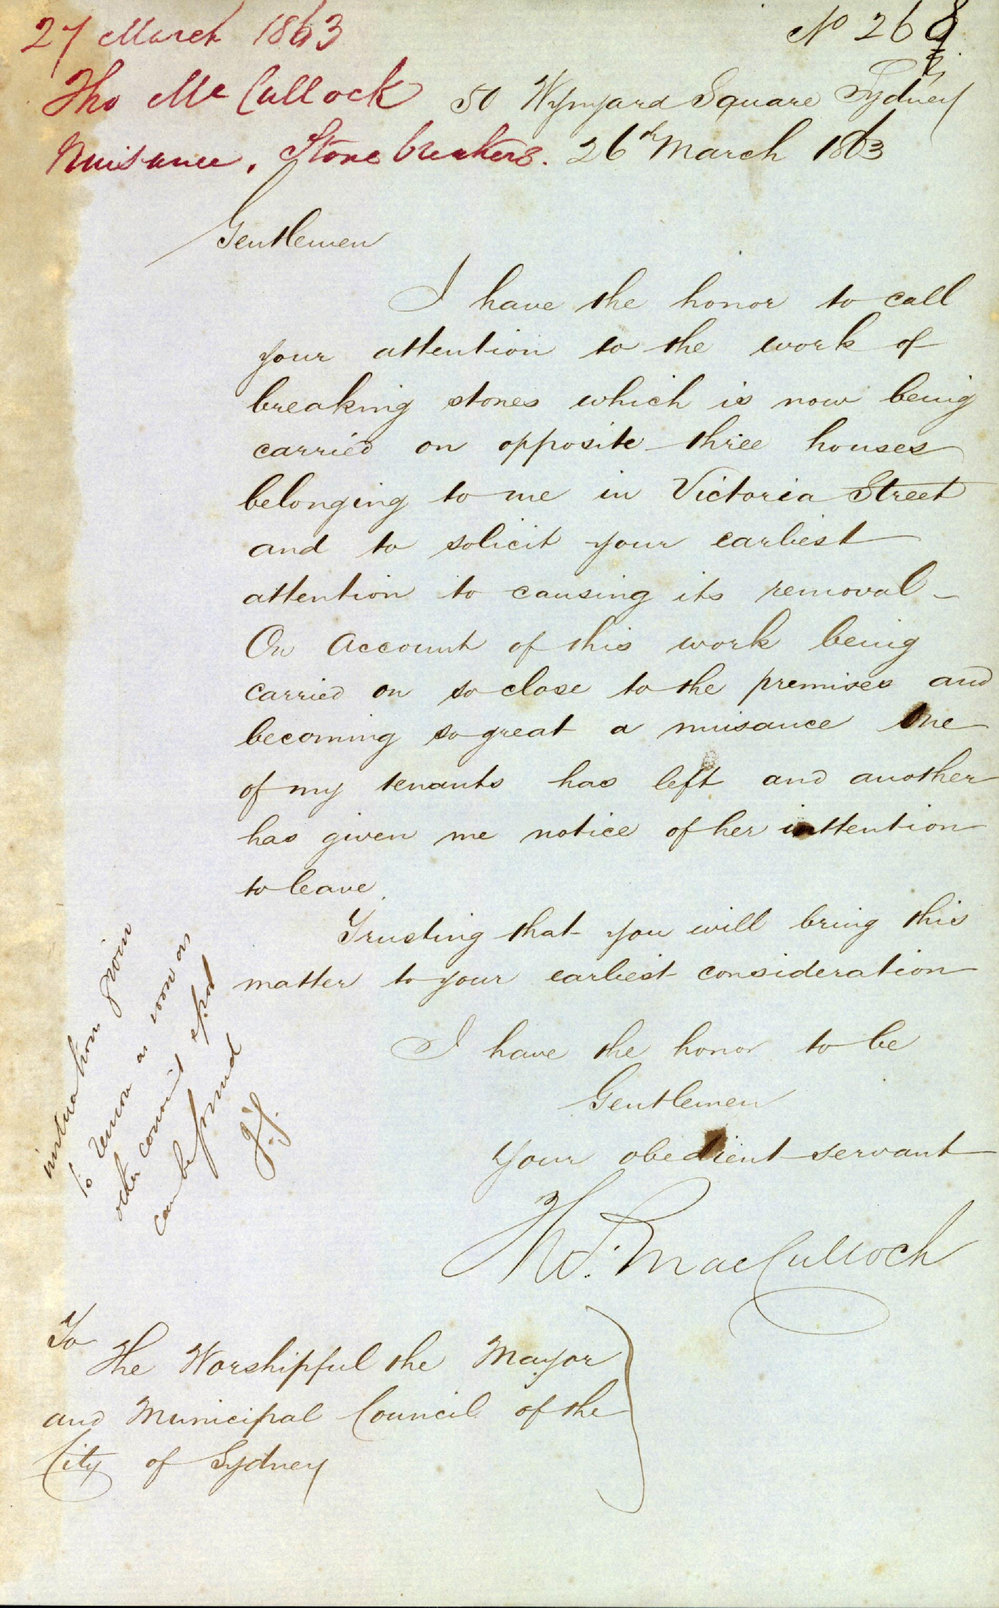 27 March 1863
No 268
Tho McCullock
50 Wynyard Square Sydney
Nuisance, Stone breakers.
26th March 1863
Gentlemen
I have the honor to call
your attention to the work of
breaking stones which is now being
carried on opposite three houses
belonging to me in Victoria Street
and to solicit your earliest
attention to causing its removal –
On account of this work being
carried on so close to the premises and
becoming so great a nuisance One
of my tenants has left and another
has given me notice of her inttention
to leave.
Trusting that you will bring this
matter to your earliest consideration
I have the honor to be
Gentlemen
Your obedient servant
Thos. MacCulloch
instructions given
to remove as soon as
other convent spot
can be found
To
The Worshipful the Mayor
and Municipal Council of the
City of Sydney